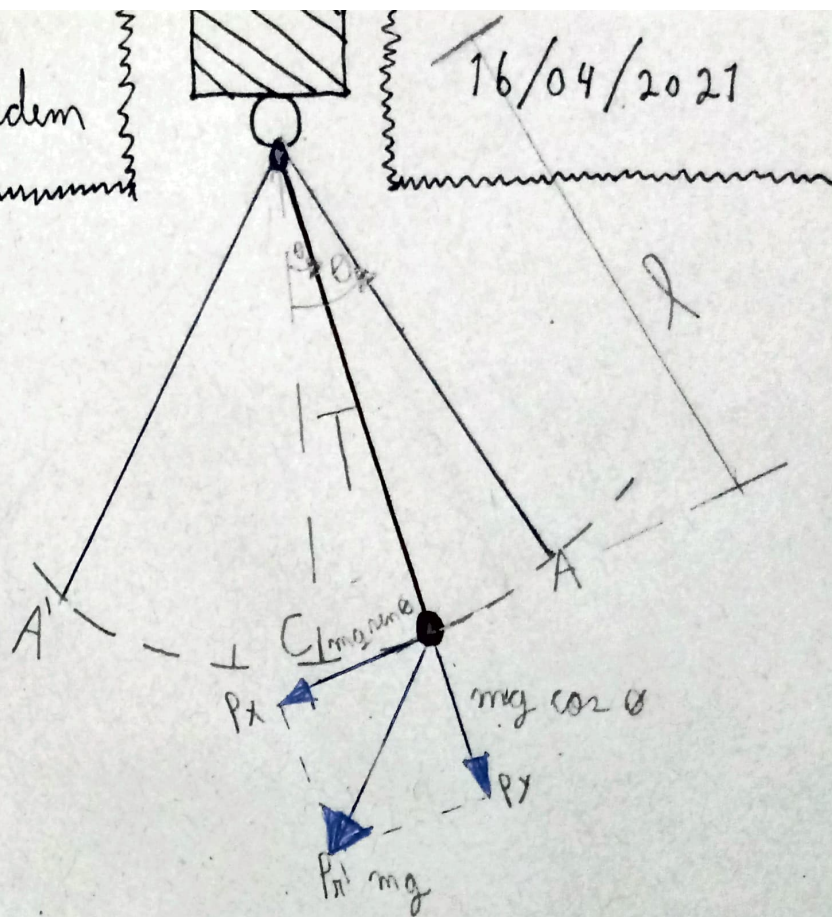 dem
16/04/2021
θ
θ
l
T
A
A'
C
mg sen θ
Px
mg cos θ
Py
mg